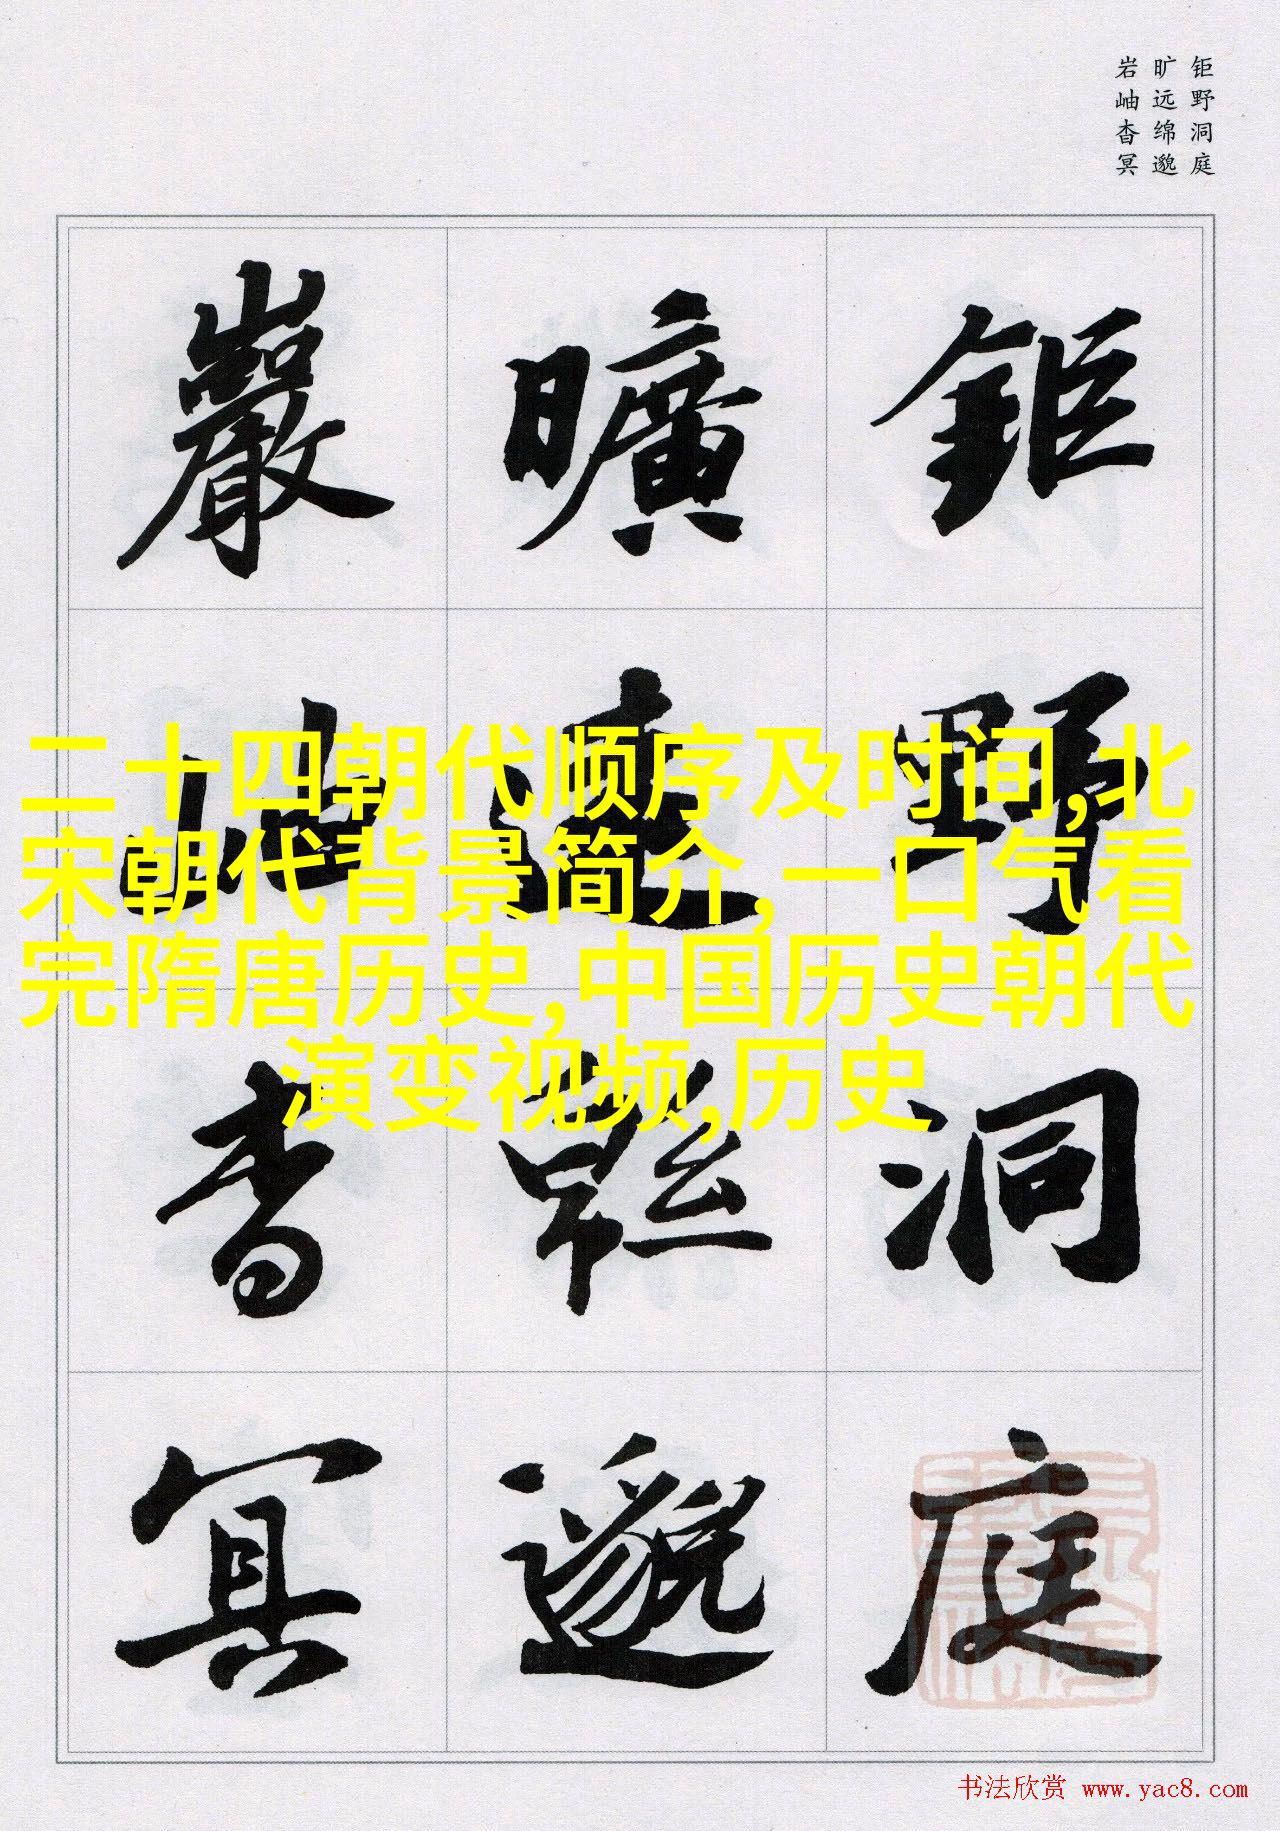 钜野洞庭
旷远绵邈
岩岫杳冥
鉅野洞庭
曠遠緜邈
巖岫杳冥
二十四朝代顺序及时间,北
宋朝代背景简介,一口气看
完隋唐历史,中国历史朝代
演变视频,历史
书法欣赏 www.yac8.com